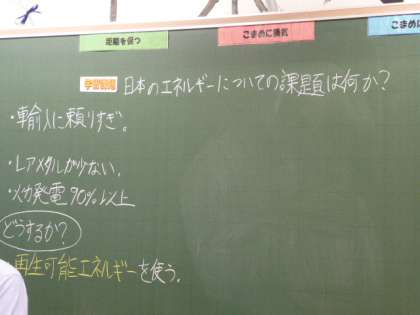 距離を保つ
こまめに換気
こまめに
学習課題 日本のエネルギーについての課題は何か?
・輸入に頼りすぎ。
・レアメタルが少ない。
・火力発電90%以上
どうするか?
再生可能エネルギーを使う。